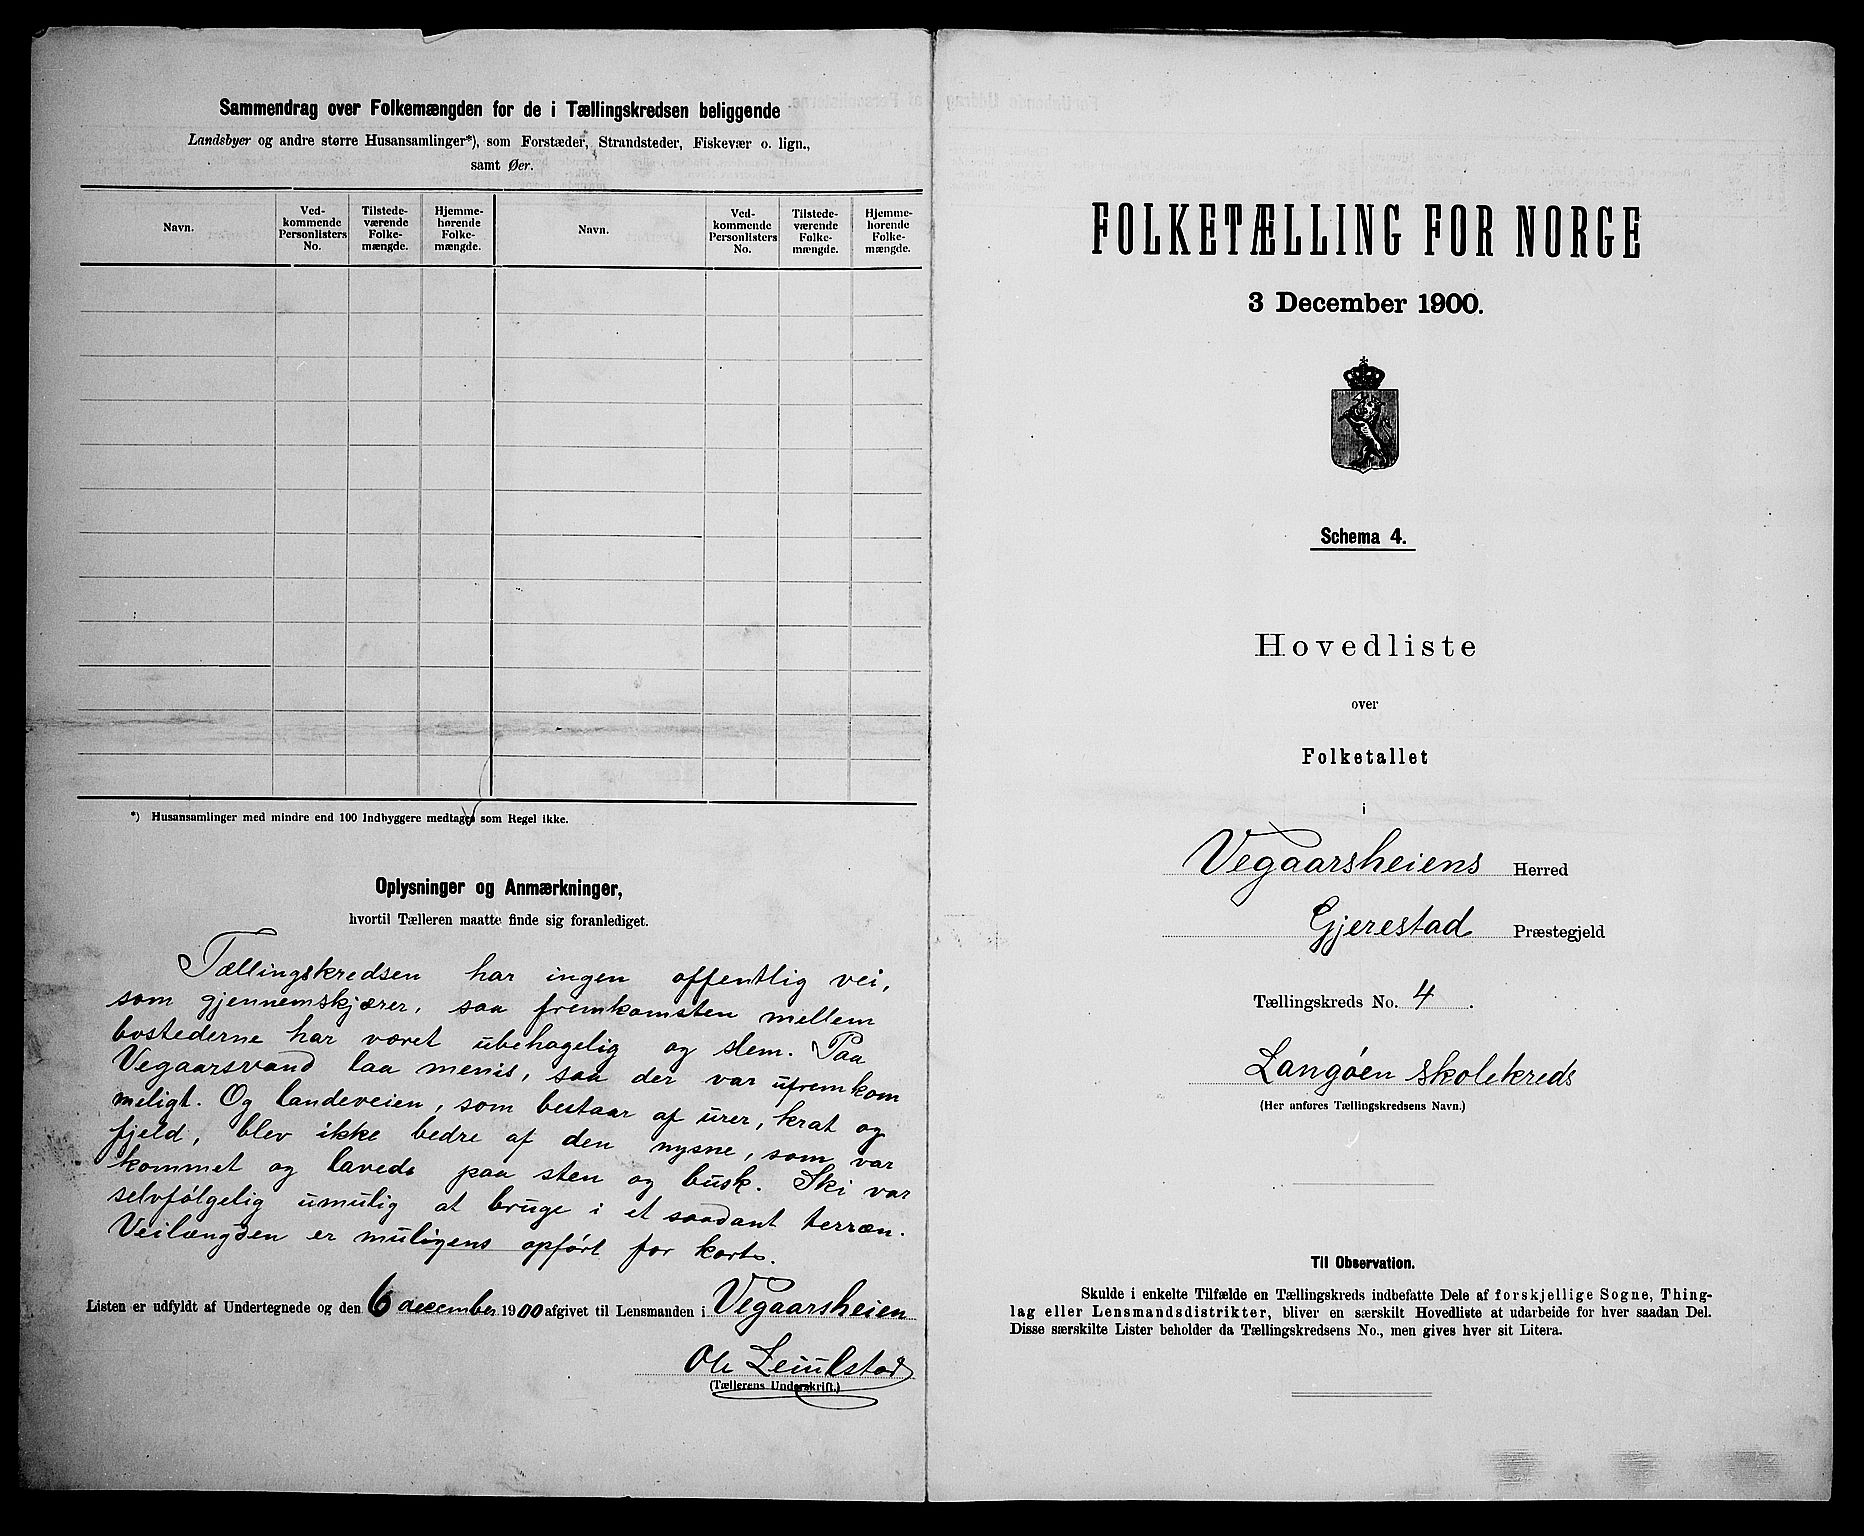 Sammendrag over Folkemængden for de i Tællingskredsen beliggende
Landsbyer og andre større Husansamlinger*), som Forstæder, Strandsteder, Fiskevær o. lign.,
samt Øer.
Navn.
Ved-
kommende
Personlisters
No.
Tilstede-
værende
Folke-
mængde.
Hjemme-
hørende
Folke-
mængde.
Navn.
Ved-
kommende
Personlisters
No.
Tilstede-
værende
Folke-
mængde.
Hjemme-
hørende
Folke-
mængde.
*) Husansamlinger med mindre end 100 Indbyggere medtages som Regel ikke.
Oplysninger og Anmærkninger,
hvortil Tælleren maatte finde sig foranlediget.
Tællingskredsen har ingen offentlig vei,
som gjennemskjærer, saa fremkomsten mellem
bostederne har været ubehagelig og slem. Paa
Vegaarsvand laa menis, saa der var ufremkom
meligt. Og landeveien, som bestaar af urer, krat og
fjeld, blev ikke bedre af den nysne, som var
kommet og lavede paa sten og busk. Ski var
selvfølgelig umulig at bruge i et saadant terræn.
Veilængden er muligens opført for kort.
Listen er udfyldt af Undertegnede og den 6 december 1900 afgivet til Lensmanden i Vegaarsheien
Ole
(Tællerens Underskrift.)
FOLKETÆLLING FOR NORGE
3 December 1900.
Schema 4.
Hovedliste
over
Folketallet
i
Vegaarsheiens Herred
Gjerestad Præstegjeld
Tællingskreds No. 4.
Langøen skolekreds
(Her anføres Tællingskredsens Navn.)
Til Observation.
Skulde i enkelte Tilfælde en Tællingskreds indbefatte Dele af forskjellige Sogne, Thing-
lag eller Lensmandsdistrikter, bliver en særskilt Hovedliste at udarbeide for hver saadan Del.
Disse særskilte Lister beholder da Tællingskredsens No., men gives hver sit Litera.